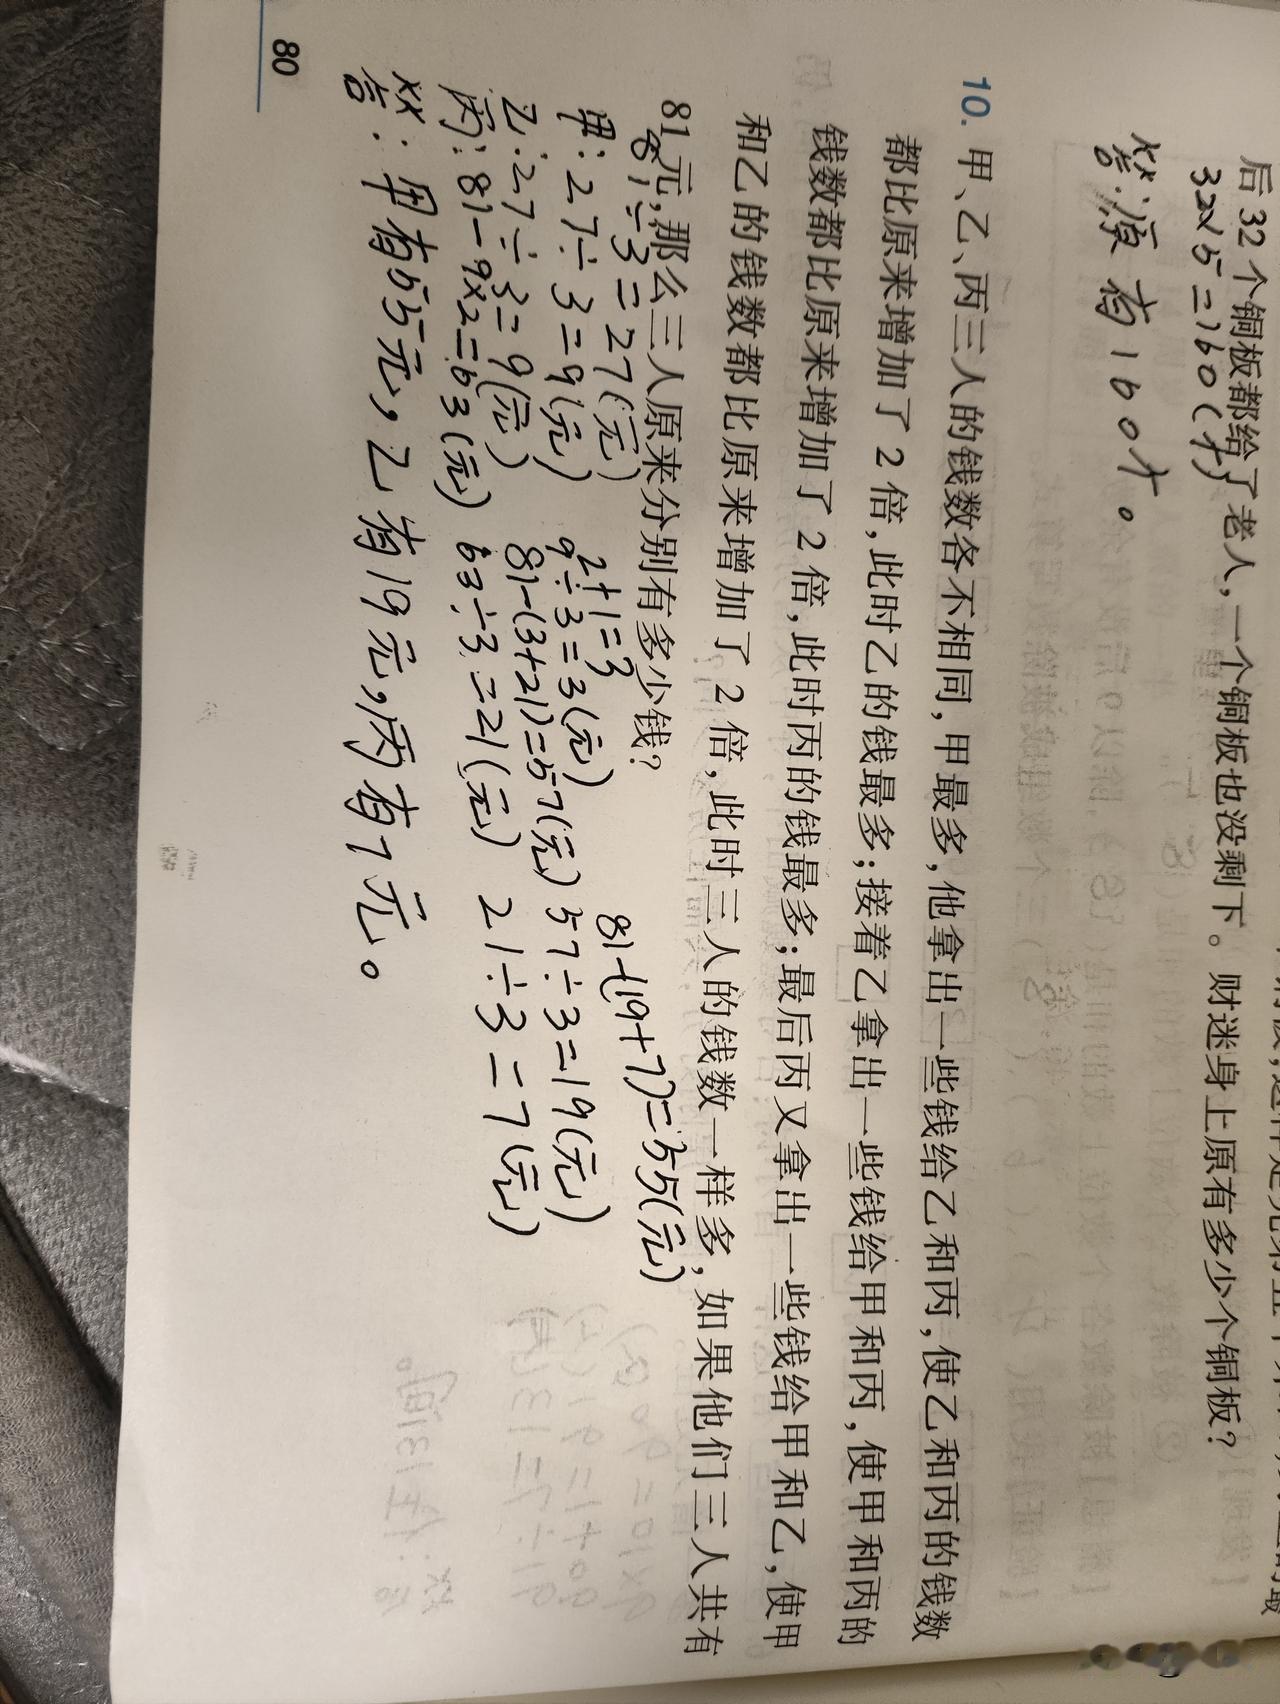 后32个铜板都给了老人,一个铜板也没剩下。财迷身上原有多少个铜板?
32×5=160(个)
答:原有160个。
10. 甲、乙、丙三人的钱数各不相同,甲最多,他拿出一些钱给乙和丙,使乙和丙的钱数
都比原来增加了2倍,此时乙的钱最多;接着乙拿出一些钱给甲和丙,使甲和丙的
钱数都比原来增加了2倍,此时丙的钱最多;最后丙又拿出一些钱给甲和乙,使甲
和乙的钱数都比原来增加了2倍,此时三人的钱数一样多,如果他们三人共有
81元,那么三人原来分别有多少钱?
81÷3=27(元) 2+1=3 81-(19+7)=55(元)
甲:27÷3=9(元) 9÷3=3(元) 57÷3=19(元)
乙:27÷3=9(元) 81-(3+21)=57(元)
丙:81-9×2=63(元) 63÷3=21(元) 21÷3=7(元)
答:甲有55元,乙有19元,丙有7元。
80